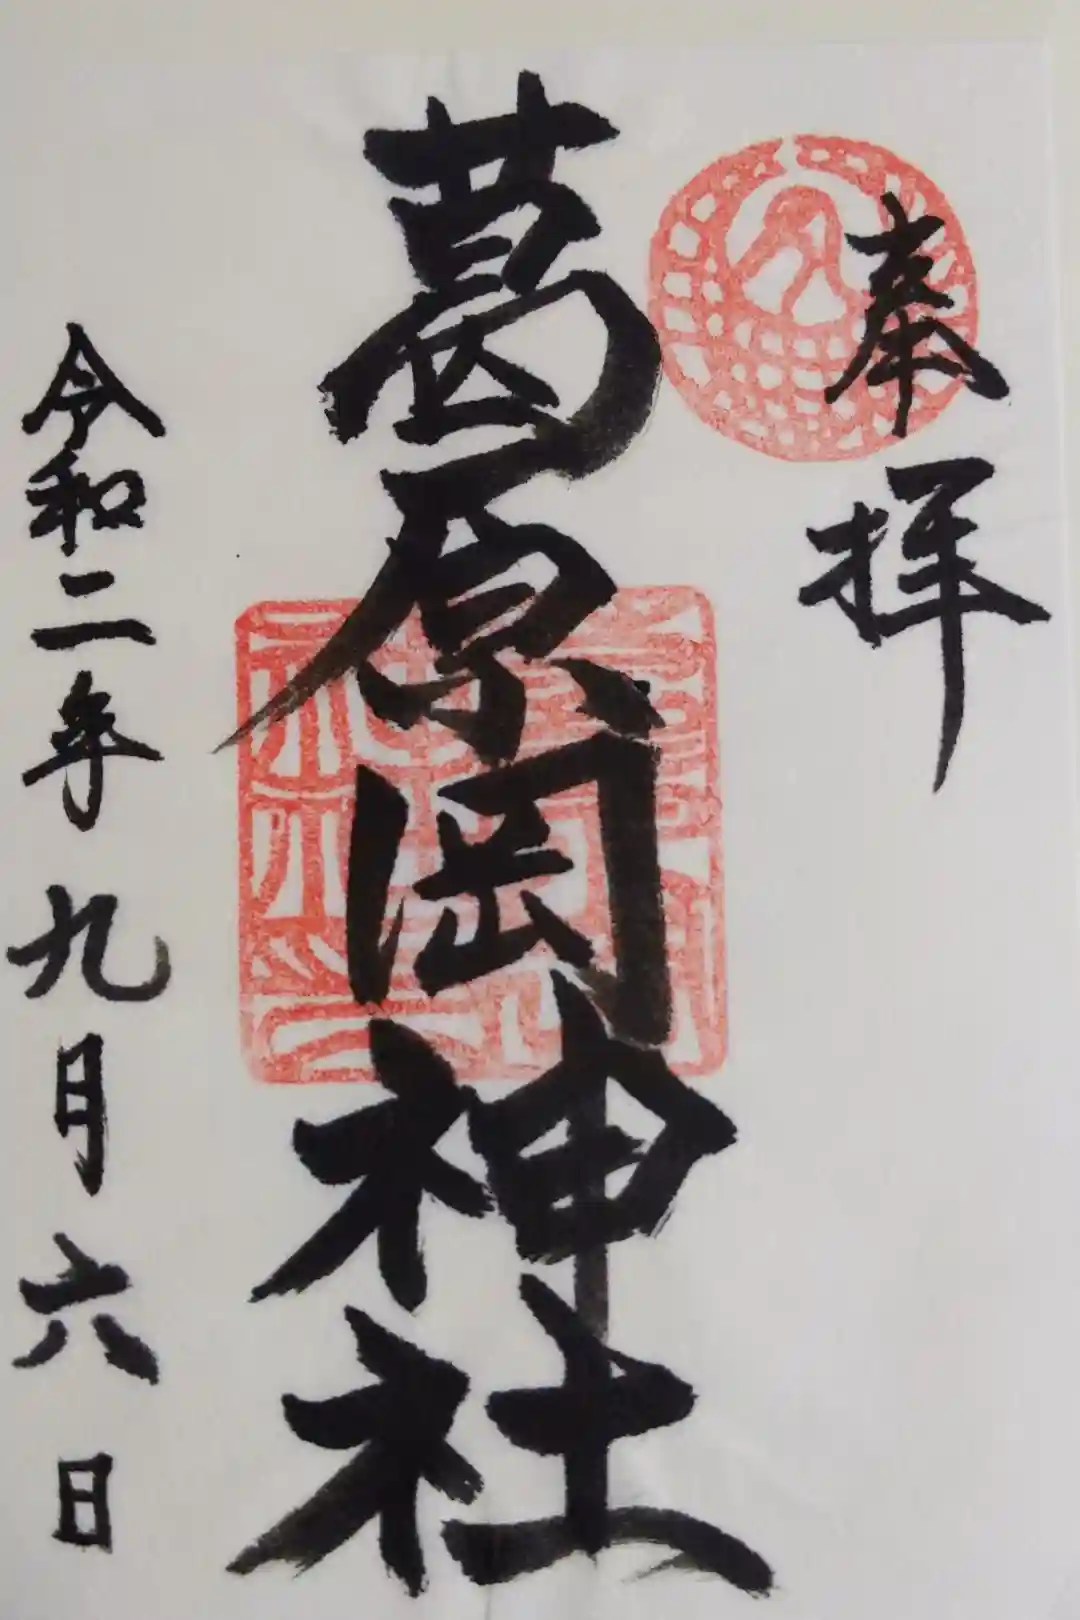 奉拝
葛原岡神社
令和二年九月六日